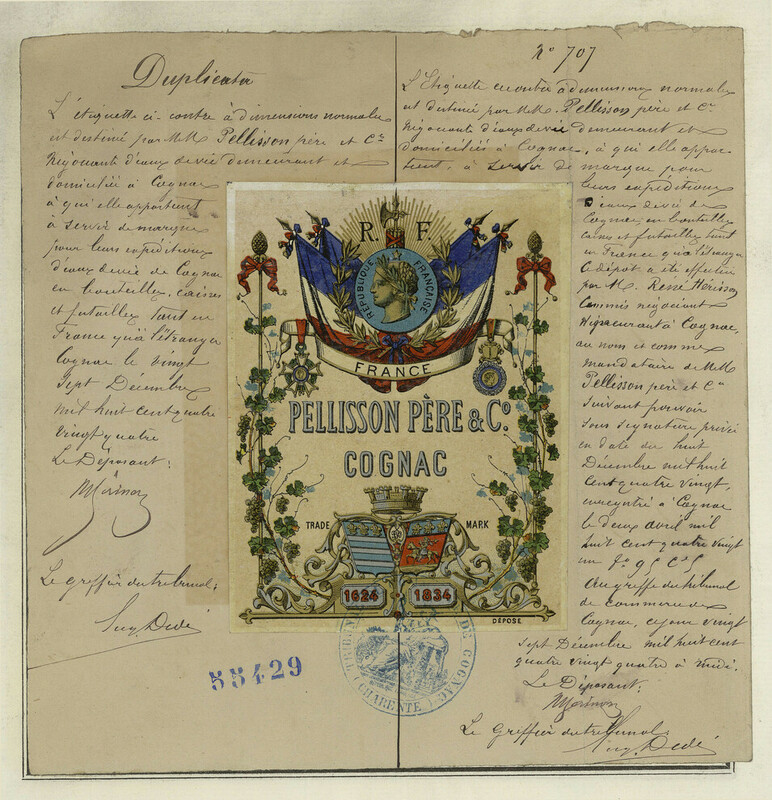 Duplicata
L'étiquette ci-contre à dimensions normales
est destiné par MM. Pellisson père et Cie
Négociants d'eaux de vie demeurant et
domiciliés à Cognac
à qui elle appartient
à servir de marque
pour leurs expéditions
d'eaux de vie de Cognac
en bouteilles, caisses
et futailles tant en
France qu'à l'étranger
Cognac le vingt
sept Décembre
mil huit cent quatre
vingt quatre
Le Déposant:
Le greffier du tribunal:
55429
R. F.
RÉPUBLIQUE FRANÇAISE
FRANCE
PELLISSON PÈRE & Co.
COGNAC
TRADE MARK
1624 1834
DÉPOSÉ
DE COGNAC
(CHARENTE)
No 707
L'Etiquette ci-contre à dimensions normales
est destiné par MM. Pellisson père et Cie
Négociants d'eaux de vie demeurant et
domiciliés à Cognac, à qui elle appar-
tient, à servir de marque pour
leurs expéditions
d'eaux de vie de
Cognac, en bouteilles
caisses et futailles tant
en France qu'à l'étranger
Ce dépôt a été effectué
par M. René Hérisson
Commis négociant
demeurant à Cognac,
au nom et comme
mandataire de MM.
Pellisson père et Cie
suivant pouvoir
sous signature privée
en date du huit
Décembre mil huit
cent quatre vingt,
enregistré à Cognac
le deux avril mil
huit cent quatre vingt
un
Au greffe du tribunal
de commerce de
Cognac, ce jour vingt
sept Décembre mil huit cent
quatre vingt quatre à midi.
Le Déposant:
Le Greffier du tribunal